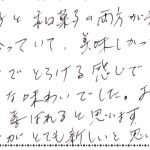 と和菓子の両方が
っていて、美味しかっ
でとろける感じで
な味わいでした。よ
喜ばれると思います
がとても新しいと思い